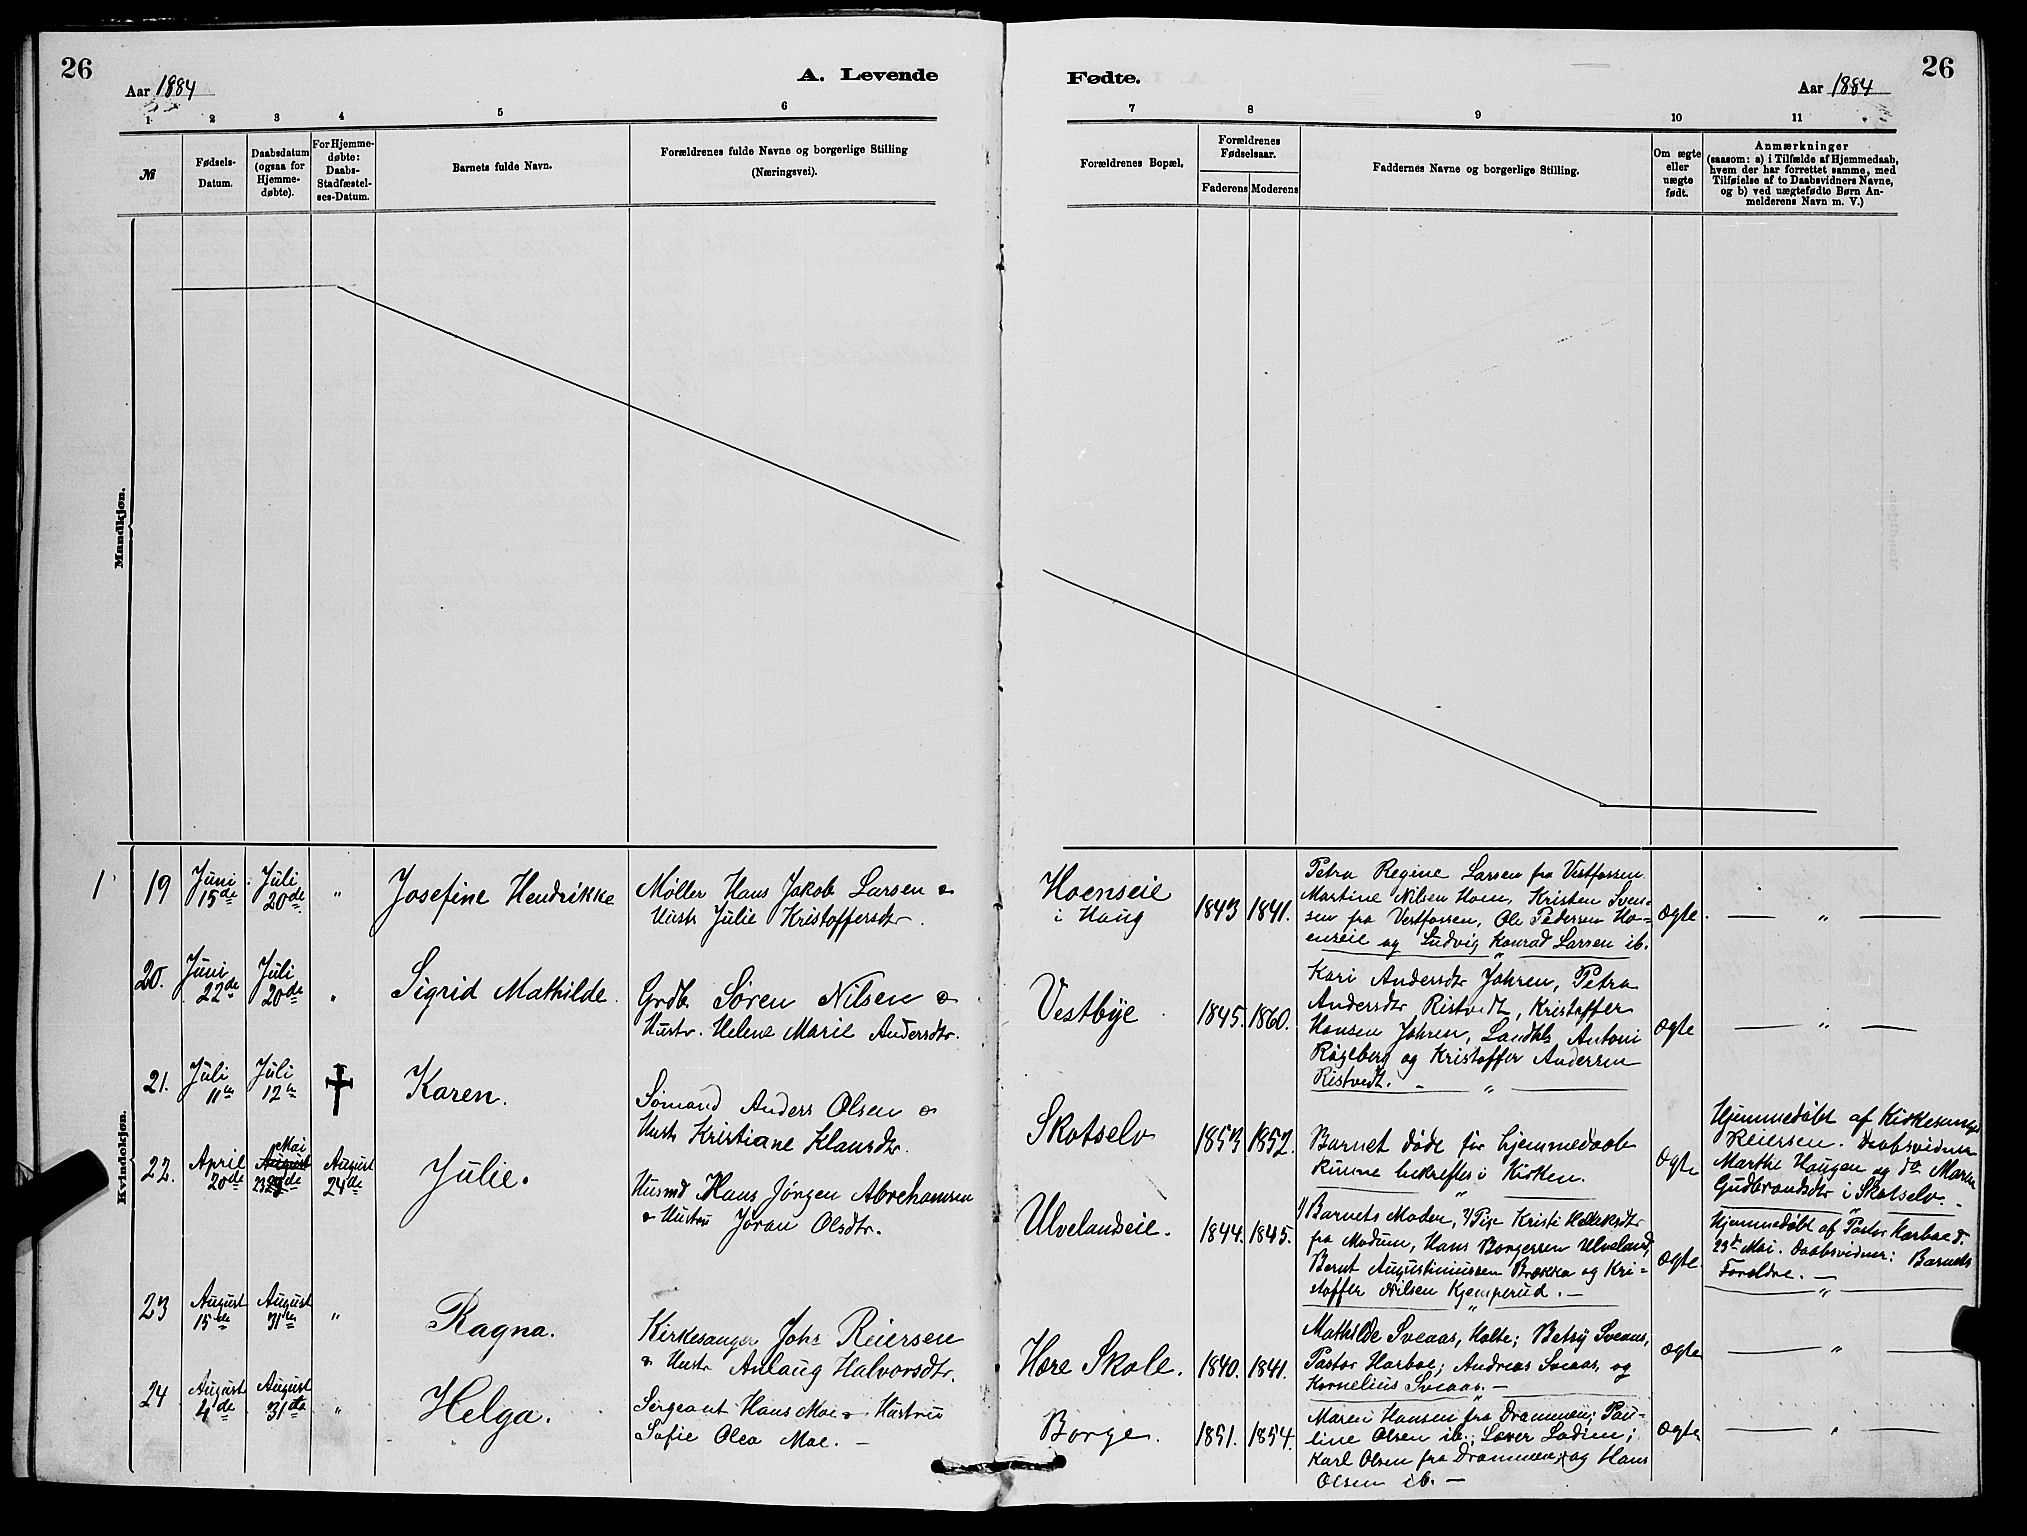 26
Aar 1884
A. Levende
1 2 3 4 5 6
№
Fødsels-
Datum.
Daabsdatum
(ogsaa for
Hjemme-
døbte).
For Hjemme-
døbte:
Daabs-
Stadfæstel-
ses-Datum.
Barnets fulde Navn.
Forældrenes fulde Navne og borgerlige Stilling
(Næringsvei).
Mandkjøn.
Kvindekjøn.
1 19 Juni 15de Juli 20de " Josefine Hendrikke Møller Hans Jakob Larsen &
Hustr Julie Kristoffersdtr.
20. Juni 22de Juli 20de " Sigrid Mathilde. Grdb. Søren Nilsen &
Hustr. Helene Marie Andersdtr.
21. Juli 11te Juli 12te † Karen. Sømand Anders Olsen &
Hustr Kristiane Klausdtr.
22. April 20de Mai August 23de August 24de Julie. Husmd Hans Jørgen Abrehamsen
& Hustru Jøran Olsdtr.
23 August 15de August 31te " Ragna. Kirkesanger Johs Reiersen
& Hustr Anlaug Halvorsdtr.
24 August 4de August 31te " Helga. Sergeant Hans Moe & Hustru
Sofie Olea Moe. —
Fødte.
Aar 1884
26
7 8 9 10 11
Forældrenes Bopæl.
Forældrenes
Fødselsaar.
Faderens Moderens
Faddernes Navne og borgerlige Stilling.
Om ægte
eller
uægte
født.
Anmærkninger
(saasom: a) i Tilfælde af Hjemmedaab,
hvem der har forrettet samme, med
Tilføielse af to Daabsvidners Navne,
og b) ved uægtefødte Børn An-
melderens Navn m. V.)
Hoenseie
i Haug
1843 1841.
Petra Regine Larsen fra Vestfossen
Martine Nilsen Hoen, Kristen Sven-
sen fra Vestfossen, Ole Pedersen Ho-
enseie og Ludvig Konrad Larsen ib.
Ægte. — " —
Vestbye.
1845. 1860.
Kari Andersdtr Jahren, Petra
Andersdtr Ristvedt, Kristoffer
Hansen Jahren, Landhlr Antoni
Røgeberg og Kristoffer Andersen
Ristvedt. — " —
Ægte — " —
Skotselv
1853 1852.
Barnet døde før hjemmedaab
kunne bekreftes i Kirken.
Ægte
Hjemmedøbt af Kirkesanger
Reiersen. Daabsvidner
Marthe Haugen og do Maren
Gudbrandsdtr i Skotselv.
Ulvelandseie.
1844. 1845.
1) Barnets Moder, 2) Pige Kristi
fra Modum, Hans Borgersen Ulveland,
Bernt Augustinussen Brekka og Kri-
stoffer Nilsen Kjemperud. —
Ægte
Hjemmedøbt af Pastor Harboe d.
23de Mai. Daabsvidner: Barnets
Foreldre. —
Hære Skole.
1840. 1841.
Mathilde Sveaas, Holte; Betsy Sveaas,
Pastor Harboe; Andreas Sveaas, og
Kornelius Sveaas. —
Ægte — " —
Borge.
1851. 1854.
Maren Hansen fra Drammen; Pau-
line Olsen ib.;
Karl Olsen fra Drammen, og Hans
Olsen ib. —
Ægte — " —